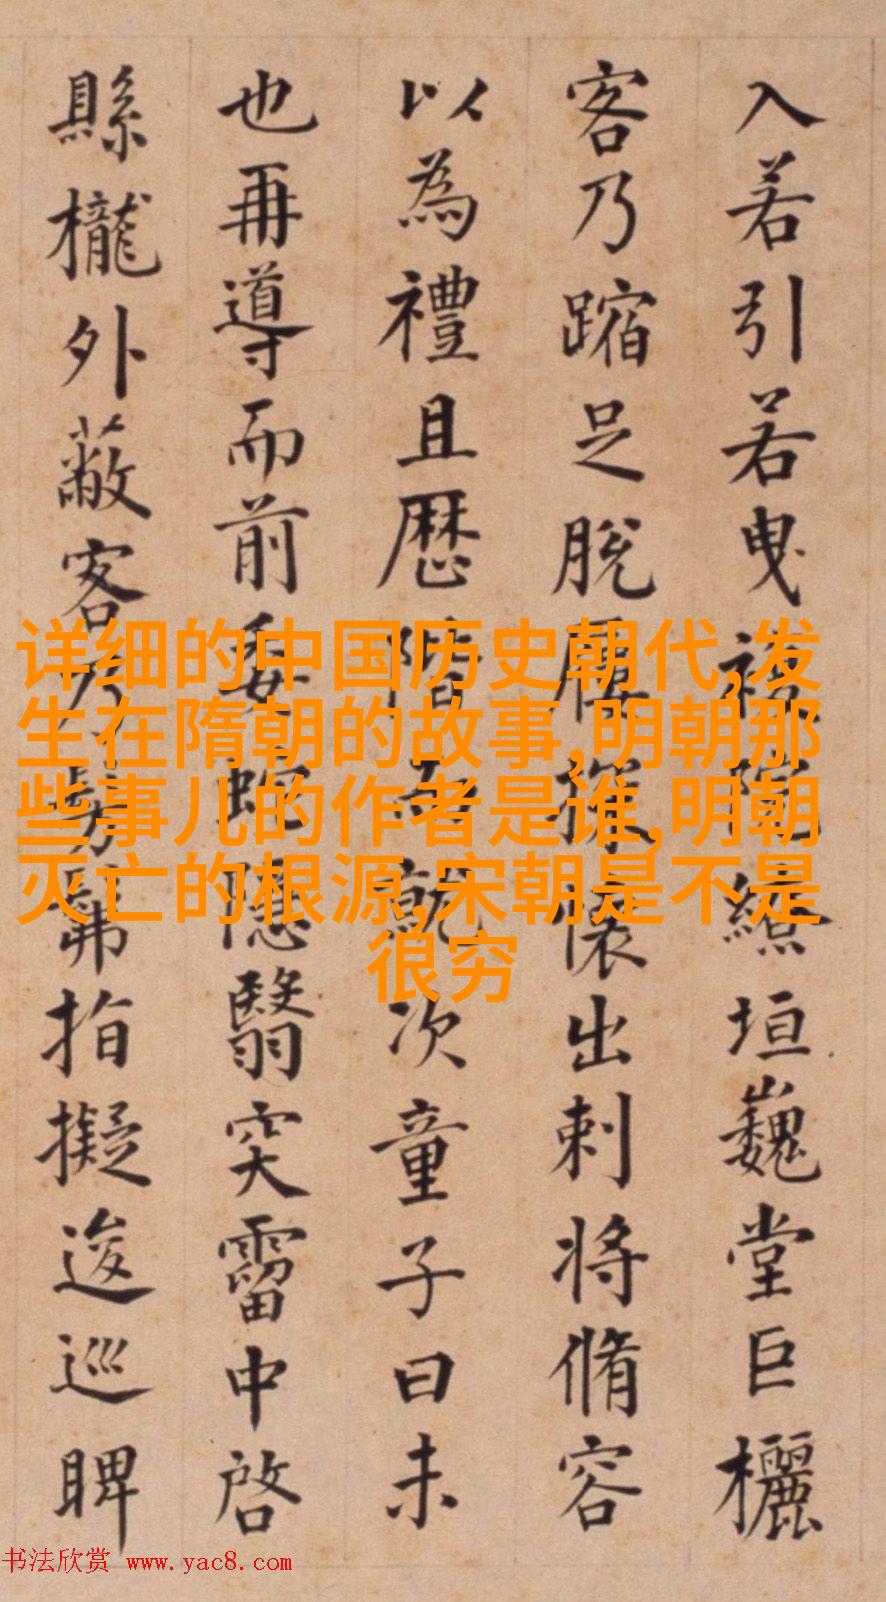 入若引若曳繚垣巍堂巨欐
客乃蹜足脫屨探懷出刺將脩容
以為禮且歷階就次童子曰未
也再導而前委蛇隱翳突霤中啓
縣櫳外蔽客乃髣髴指擬逡巡睥
详细的中国历史朝代,发
生在隋朝的故事,明朝那
些事儿的作者是谁,明朝
灭亡的根源,宋朝是不是
很穷
书法欣赏 www.yac8.com